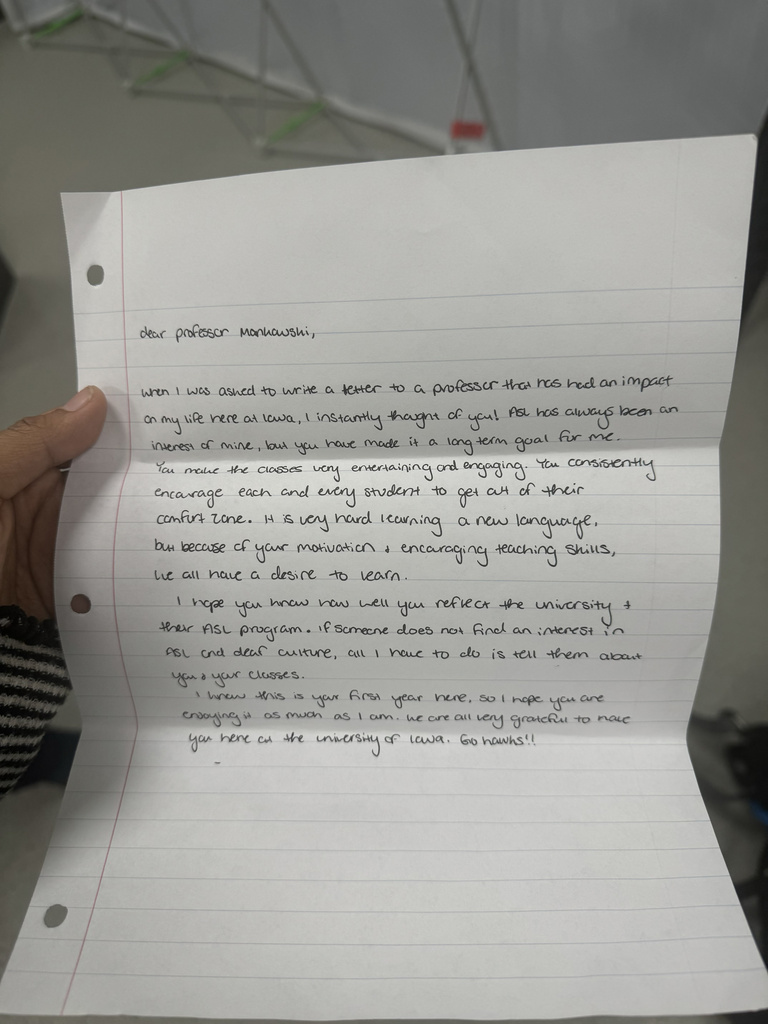 dear professor Mankowski,
when I was asked to write a letter to a professor that has had an impact
on my life here at Iowa, I instantly thought of you! ASL has always been an
interest of mine, but you have made it a long term goal for me.
You make the classes very entertaining and engaging. You consistently
encourage each and every student to get out of their
comfort zone. It is very hard learning a new language,
but because of your motivation & encouraging teaching skills,
we all have a desire to learn.
I hope you know how well you reflect the university &
their ASL program. if someone does not find an interest in
ASL and deaf culture, all I have to do is tell them about
you & your classes.
I know this is your first year here, so I hope you are
enjoying it as much as I am. we are all very grateful to have
you here at the university of Iowa. Go hawks!!